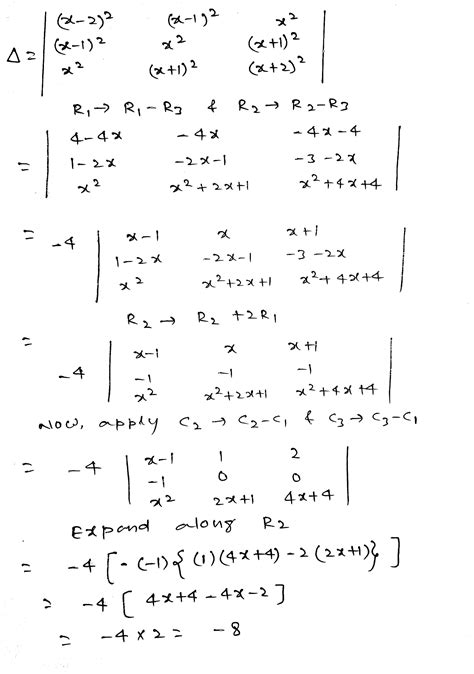 Δ = | (x-2)² (x-1)² x² |
| (x-1)² x² (x+1)² |
| x² (x+1)² (x+2)² |
R₁ → R₁ - R₃ & R₂ → R₂ - R₃
= | 4-4x -4x -4x-4 |
| 1-2x -2x-1 -3-2x |
| x² x²+2x+1 x²+4x+4 |
= -4 | x-1 x x+1 |
| 1-2x -2x-1 -3-2x |
| x² x²+2x+1 x²+4x+4 |
R₂ → R₂ + 2R₁
= -4 | x-1 x x+1 |
| -1 -1 -1 |
| x² x²+2x+1 x²+4x+4 |
Now, apply C₂ → C₂-C₁ & C₃ → C₃-C₁
= -4 | x-1 1 2 |
| -1 0 0 |
| x² 2x+1 4x+4 |
Expand along R2
= -4 [ - (-1) { (1) (4x+4) - 2 (2x+1) } ]
= -4 [ 4x+4 - 4x-2 ]
= -4 × 2 = -8